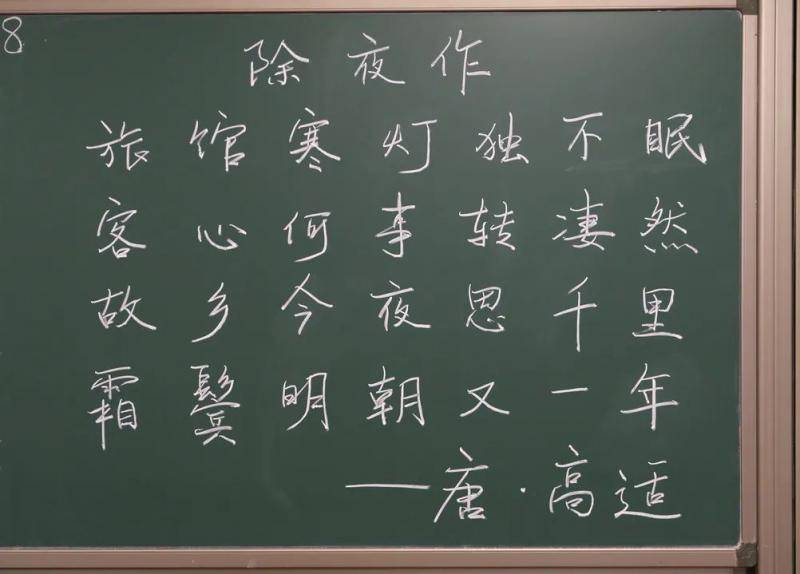 8
除夜作
旅馆寒灯独不眠
客心何事转凄然
故乡今夜思千里
霜鬓明朝又一年
——唐·高适